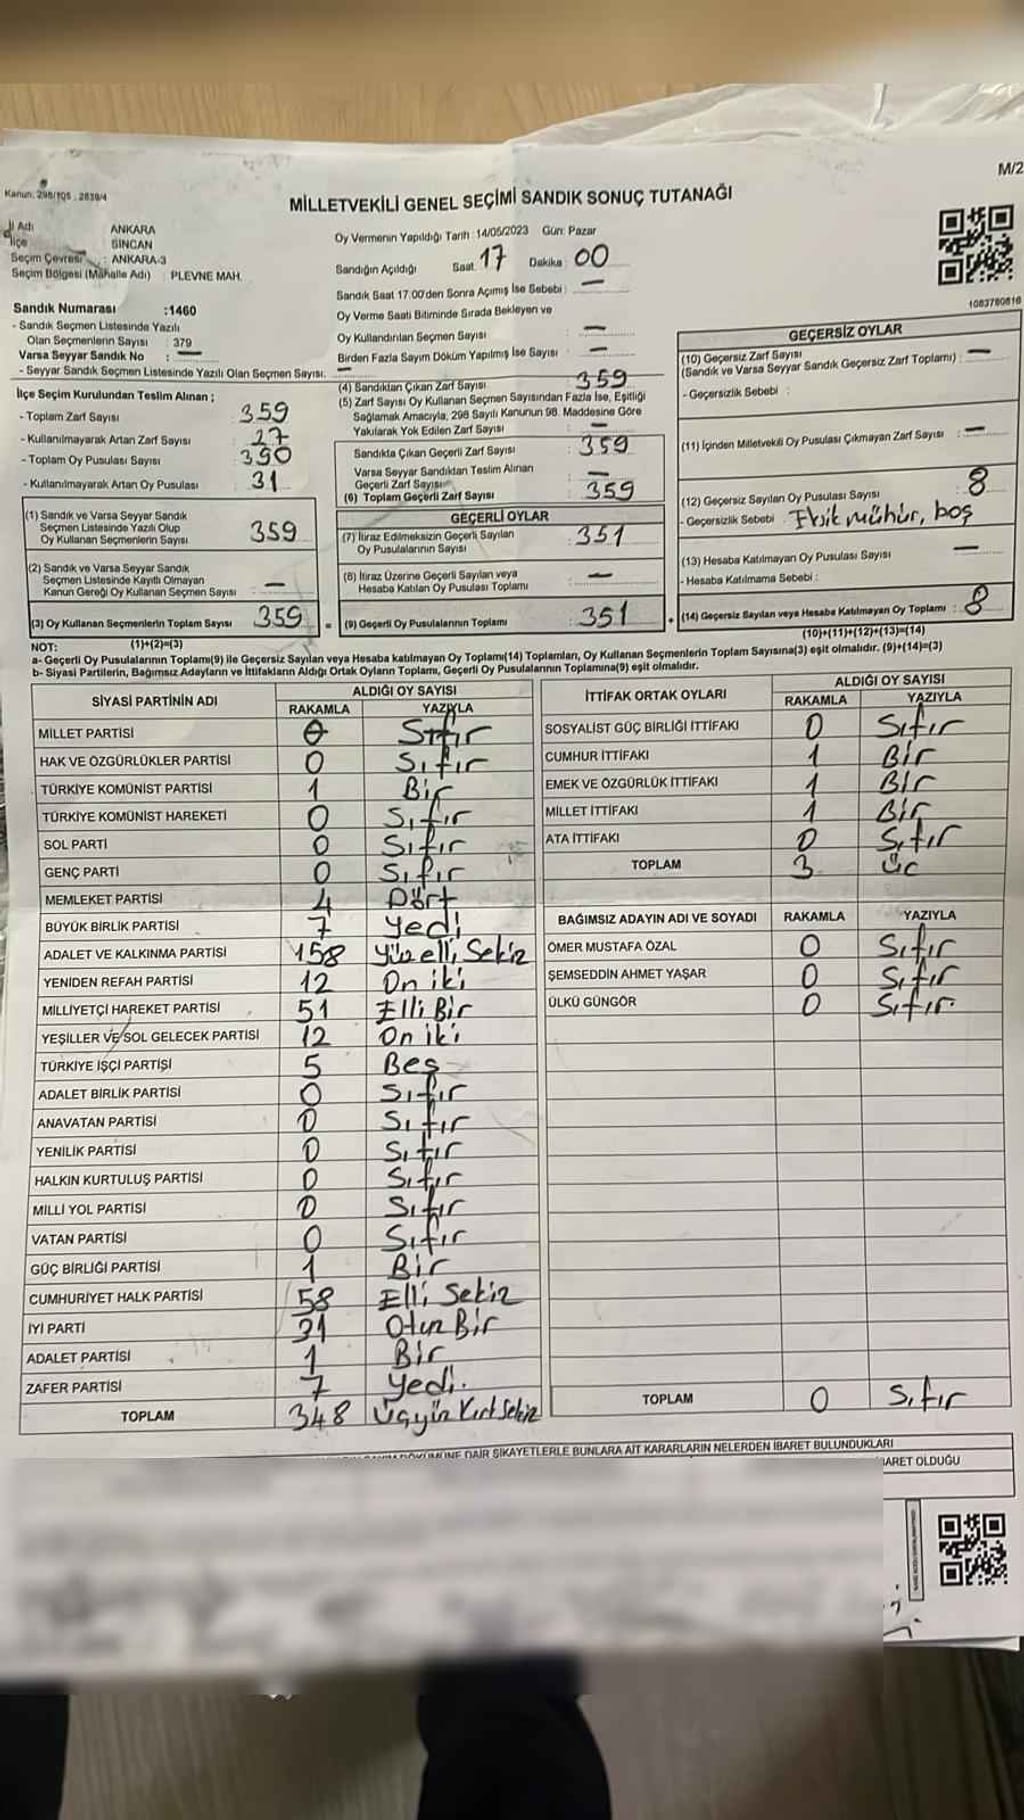 M/2
Kanun: 298/105 - 2839/4
MİLLETVEKİLİ GENEL SEÇİMİ SANDIK SONUÇ TUTANAĞI
İl Adı ANKARA
İlçe SİNCAN
Seçim Çevresi : ANKARA-3
Seçim Bölgesi (Mahalle Adı) : PLEVNE MAH.
Sandık Numarası :1460
- Sandık Seçmen Listesinde Yazılı
Olan Seçmenlerin Sayısı : 379
Varsa Seyyar Sandık No : —
- Seyyar Sandık Seçmen Listesinde Yazılı Olan Seçmen Sayısı. —
İlçe Seçim Kurulundan Teslim Alınan ;
- Toplam Zarf Sayısı 359
- Kullanılmayarak Artan Zarf Sayısı 27
- Toplam Oy Pusulası Sayısı 390
- Kullanılmayarak Artan Oy Pusulası 31
(1) Sandık ve Varsa Seyyar Sandık
Seçmen Listesinde Yazılı Olup
Oy Kullanan Seçmenlerin Sayısı 359
(2) Sandık ve Varsa Seyyar Sandık
Seçmen Listesinde Kayıtlı Olmayan
Kanun Gereği Oy Kullanan Seçmen Sayısı : —
(3) Oy Kullanan Seçmenlerin Toplam Sayısı 359
(1)+(2)=(3)
Oy Vermenin Yapıldığı Tarih : 14/05/2023 Gün: Pazar
Sandığın Açıldığı Saat 17 Dakika : 00
Sandık Saat 17:00'den Sonra Açımış İse Sebebi : —
Oy Verme Saati Bitiminde Sırada Bekleyen ve
Oy Kullandırılan Seçmen Sayısı : —
Birden Fazla Sayım Döküm Yapılmış İse Sayısı : —
(4) Sandıktan Çıkan Zarf Sayısı 359
(5) Zarf Sayısı Oy Kullanan Seçmen Sayısından Fazla İse, Eşitliği
Sağlamak Amacıyla, 298 Sayılı Kanunun 98. Maddesine Göre
Yakılarak Yok Edilen Zarf Sayısı : —
Sandıkta Çıkan Geçerli Zarf Sayısı : 359
Varsa Seyyar Sandıktan Teslim Alınan
Geçerli Zarf Sayısı : —
(6) Toplam Geçerli Zarf Sayısı 359
GEÇERLİ OYLAR
(7) İtiraz Edilmeksizin Geçerli Sayılan
Oy Pusulalarının Sayısı : 351
(8) İtiraz Üzerine Geçerli Sayılan veya
Hesaba Katılan Oy Pusulası Toplamı : —
= (9) Geçerli Oy Pusulalarının Toplamı : 351
1083780816
GEÇERSİZ OYLAR
(10) Geçersiz Zarf Sayısı
(Sandık ve Varsa Seyyar Sandık Geçersiz Zarf Toplamı) : —
- Geçersizlik Sebebi :
(11) İçinden Milletvekili Oy Pusulası Çıkmayan Zarf Sayısı : —
(12) Geçersiz Sayılan Oy Pusulası Sayısı : 8
- Geçersizlik Sebebi Eksik mühür, boş
(13) Hesaba Katılmayan Oy Pusulası Sayısı —
- Hesaba Katılmama Sebebi :
+ (14) Geçersiz Sayılan veya Hesaba Katılmayan Oy Toplamı : 8
(10)+(11)+(12)+(13)=(14)
NOT:
a- Geçerli Oy Pusulalarının Toplamı(9) ile Geçersiz Sayılan veya Hesaba katılmayan Oy Toplamı(14) Toplamları, Oy Kullanan Seçmenlerin Toplam Sayısına(3) eşit olmalıdır. (9)+(14)=(3)
b- Siyasi Partilerin, Bağımsız Adayların ve İttifakların Aldığı Ortak Oyların Toplamı, Geçerli Oy Pusulalarının Toplamına(9) eşit olmalıdır.
SİYASİ PARTİNİN ADI ALDIĞI OY SAYISI
RAKAMLA YAZIYLA
MİLLET PARTİSİ 0 Sıfır
HAK VE ÖZGÜRLÜKLER PARTİSİ 0 Sıfır
TÜRKİYE KOMÜNİST PARTİSİ 1 Bir
TÜRKİYE KOMÜNİST HAREKETİ 0 Sıfır
SOL PARTİ 0 Sıfır
GENÇ PARTİ 0 Sıfır
MEMLEKET PARTİSİ 4 Dört
BÜYÜK BİRLİK PARTİSİ 7 Yedi
ADALET VE KALKINMA PARTİSİ 158 Yüz elli Sekiz
YENİDEN REFAH PARTİSİ 12 On iki
MİLLİYETÇİ HAREKET PARTİSİ 51 Elli Bir
YEŞİLLER VE SOL GELECEK PARTİSİ 12 On iki
TÜRKİYE İŞÇİ PARTİSİ 5 Beş
ADALET BİRLİK PARTİSİ 0 Sıfır
ANAVATAN PARTİSİ 0 Sıfır
YENİLİK PARTİSİ 0 Sıfır
HALKIN KURTULUŞ PARTİSİ 0 Sıfır
MİLLİ YOL PARTİSİ 0 Sıfır
VATAN PARTİSİ 0 Sıfır
GÜÇ BİRLİĞİ PARTİSİ 1 Bir
CUMHURİYET HALK PARTİSİ 58 Elli Sekiz
İYİ PARTİ 31 Otuz Bir
ADALET PARTİSİ 1 Bir
ZAFER PARTİSİ 7 Yedi.
TOPLAM 348 Üçyüz Kırk Sekiz
İTTİFAK ORTAK OYLARI ALDIĞI OY SAYISI
RAKAMLA YAZIYLA
SOSYALİST GÜÇ BİRLİĞİ İTTİFAKI 0 Sıfır
CUMHUR İTTİFAKI 1 Bir
EMEK VE ÖZGÜRLÜK İTTİFAKI 1 Bir
MİLLET İTTİFAKI 1 Bir
ATA İTTİFAKI 0 Sıfır
TOPLAM 3 Üç
BAĞIMSIZ ADAYIN ADI VE SOYADI RAKAMLA YAZIYLA
ÖMER MUSTAFA ÖZAL 0 Sıfır
ŞEMSEDDİN AHMET YAŞAR 0 Sıfır
ÜLKÜ GÜNGÖR 0 Sıfır.
TOPLAM 0 Sıfır
DÖKÜMÜNE DAİR ŞİKAYETLERLE BUNLARA AİT KARARLARIN NELERDEN İBARET BULUNDUKLARI
BARET OLDUĞU